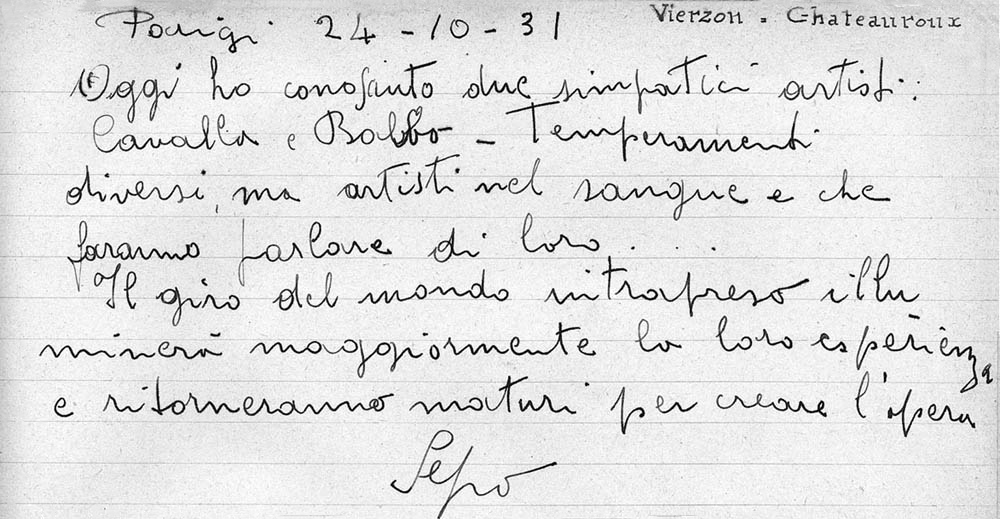 Parigi 24-10-31
Vierzon. Chateauroux
Oggi ho conosciuto due simpatici artisti:
Cavalla e Balbo - Temperamenti
diversi, ma artisti nel sangue e che
faranno parlare di loro...
Il giro del mondo intrapreso illu
minerà maggiormente la loro esperienza
e ritorneranno maturi per creare l'opera
Sepo